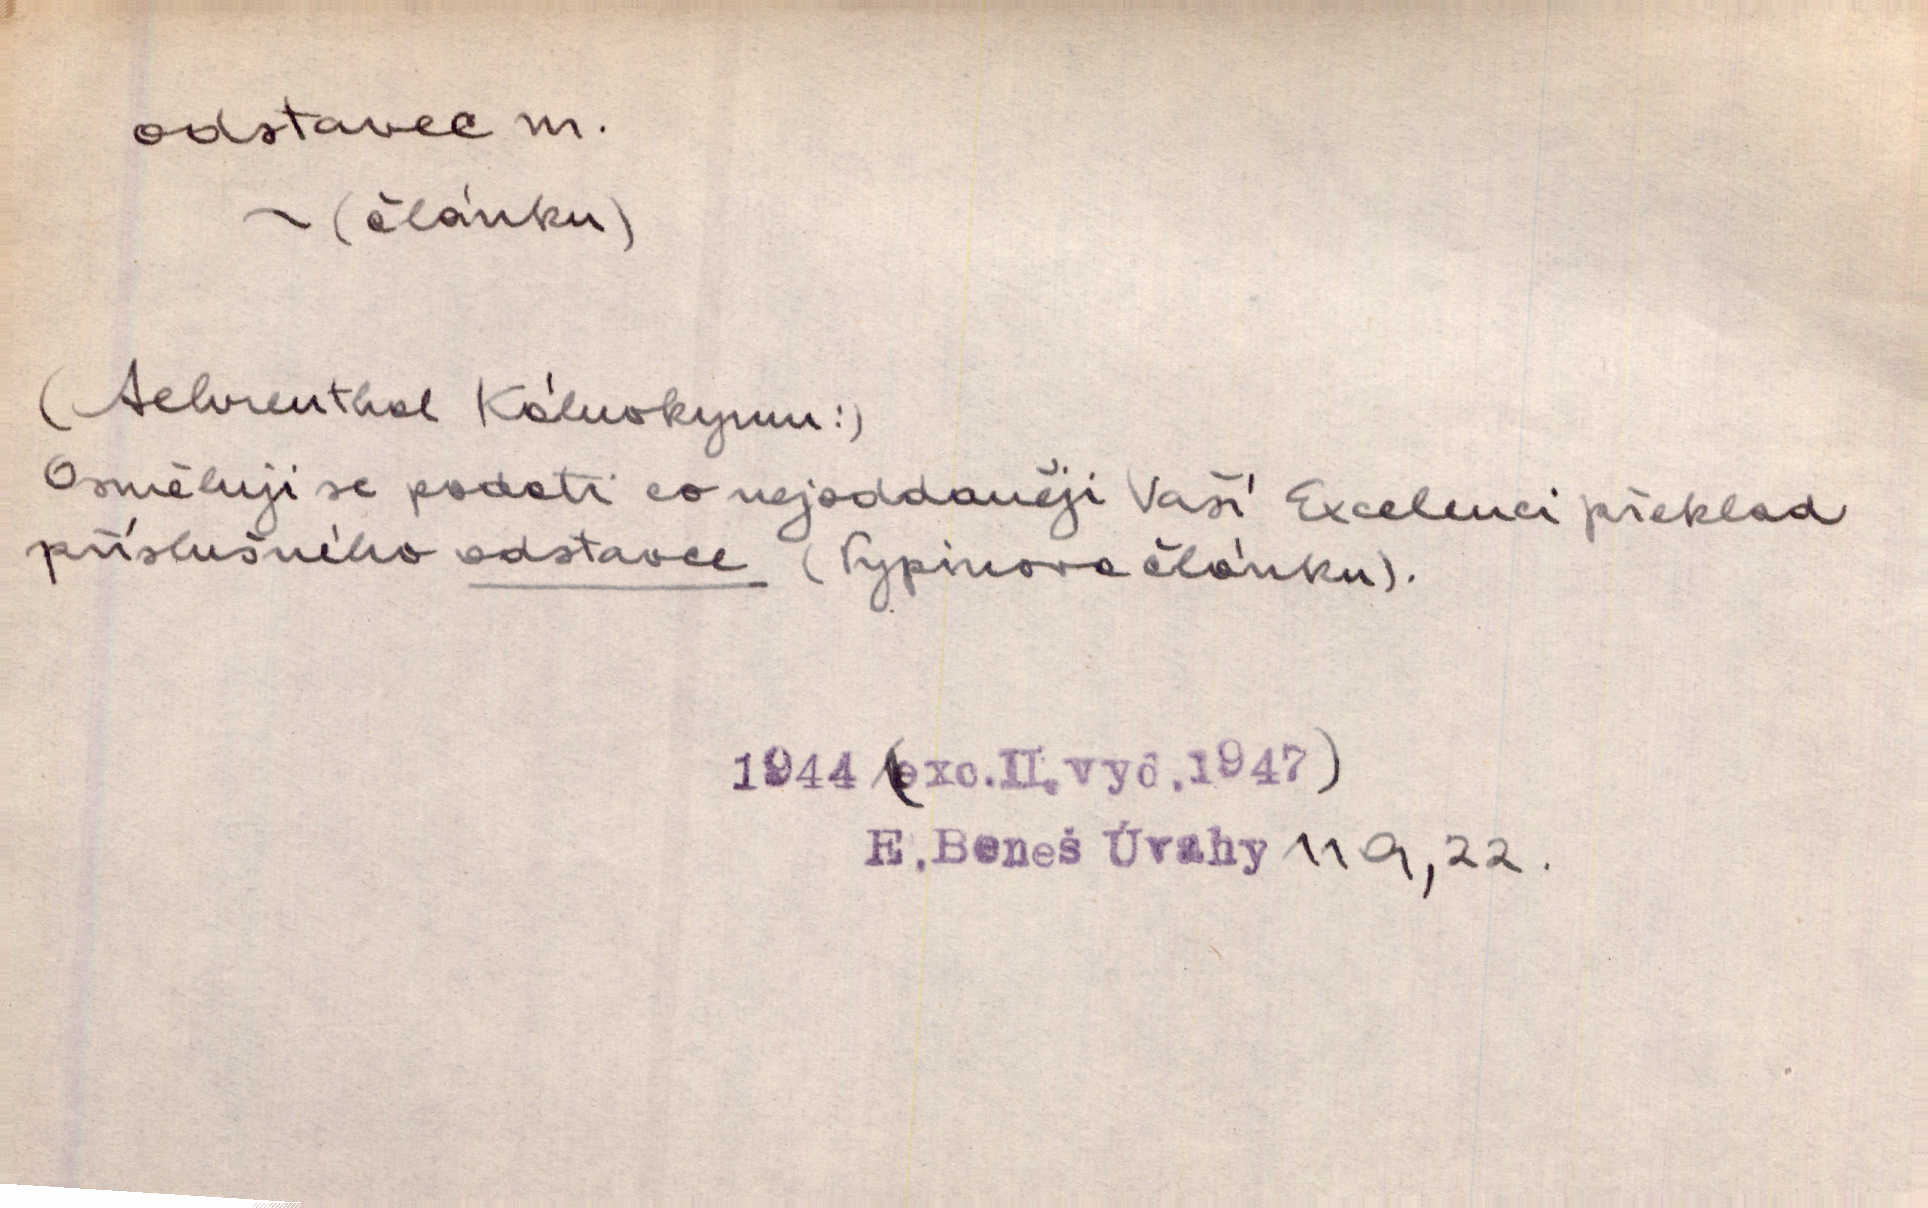 odstavec m.
~ (článku)
(Aehrenthal Kálnokymu:)
Osměluji se podati co nejoddaněji Vaší Excelenci překlad
příslušného odstavce (Pypinova článku).
1944 (exc. II. vyd. 1947)
E. Beneš Úvahy 119, 22.